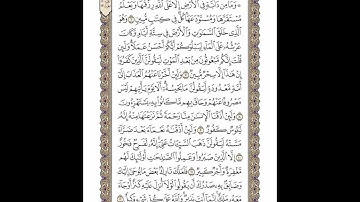 ۞ وَمَا مِن دَآبَّةٍ فِي ٱلۡأَرۡضِ إِلَّا عَلَى ٱللَّهِ رِزۡقُهَا وَيَعۡلَمُ
مُسۡتَقَرَّهَا وَمُسۡتَوۡدَعَهَاۚ كُلّٞ فِي كِتَٰبٖ مُّبِينٖ ٦ وَهُوَ
ٱلَّذِي خَلَقَ ٱلسَّمَٰوَٰتِ وَٱلۡأَرۡضَ فِي سِتَّةِ أَيَّامٖ وَكَانَ
عَرۡشُهُۥ عَلَى ٱلۡمَآءِ لِيَبۡلُوَكُمۡ أَيُّكُمۡ أَحۡسَنُ عَمَلٗاۗ وَلَئِن
قُلۡتَ إِنَّكُم مَّبۡعُوثُونَ مِنۢ بَعۡدِ ٱلۡمَوۡتِ لَيَقُولَنَّ ٱلَّذِينَ كَفَرُوٓاْ
إِنۡ هَٰذَآ إِلَّا سِحۡرٞ مُّبِينٞ ٧ وَلَئِنۡ أَخَّرۡنَا عَنۡهُمُ ٱلۡعَذَابَ إِلَىٰٓ
أُمَّةٖ مَّعۡدُودَةٖ لَّيَقُولُنَّ مَا يَحۡبِسُهُۥٓۗ أَلَا يَوۡمَ يَأۡتِيهِمۡ لَيۡسَ
مَصۡرُوفًا عَنۡهُمۡ وَحَاقَ بِهِم مَّا كَانُواْ بِهِۦ يَسۡتَهۡزِءُونَ
٨ وَلَئِنۡ أَذَقۡنَا ٱلۡإِنسَٰنَ مِنَّا رَحۡمَةٗ ثُمَّ نَزَعۡنَٰهَا مِنۡهُ إِنَّهُۥ
لَيَـُٔوسٞ كَفُورٞ ٩ وَلَئِنۡ أَذَقۡنَٰهُ نَعۡمَآءَ بَعۡدَ ضَرَّآءَ
مَسَّتۡهُ لَيَقُولَنَّ ذَهَبَ ٱلسَّيِّـَٔاتُ عَنِّيٓۚ إِنَّهُۥ لَفَرِحٞ فَخُورٌ
١٠ إِلَّا ٱلَّذِينَ صَبَرُواْ وَعَمِلُواْ ٱلصَّٰلِحَٰتِ أُوْلَٰٓئِكَ لَهُم
مَّغۡفِرَةٞ وَأَجۡرٞ كَبِيرٞ ١١ فَلَعَلَّكَ تَارِكُۢ بَعۡضَ مَا يُوحَىٰٓ إِلَيۡكَ
وَضَآئِقُۢ بِهِۦ صَدۡرُكَ أَن يَقُولُواْ لَوۡلَآ أُنزِلَ عَلَيۡهِ كَنزٌ أَوۡ جَآءَ
مَعَهُۥ مَلَكٌۚ إِنَّمَآ أَنتَ نَذِيرٞۚ وَٱللَّهُ عَلَىٰ كُلِّ شَيۡءٖ وَكِيلٌ ١٢